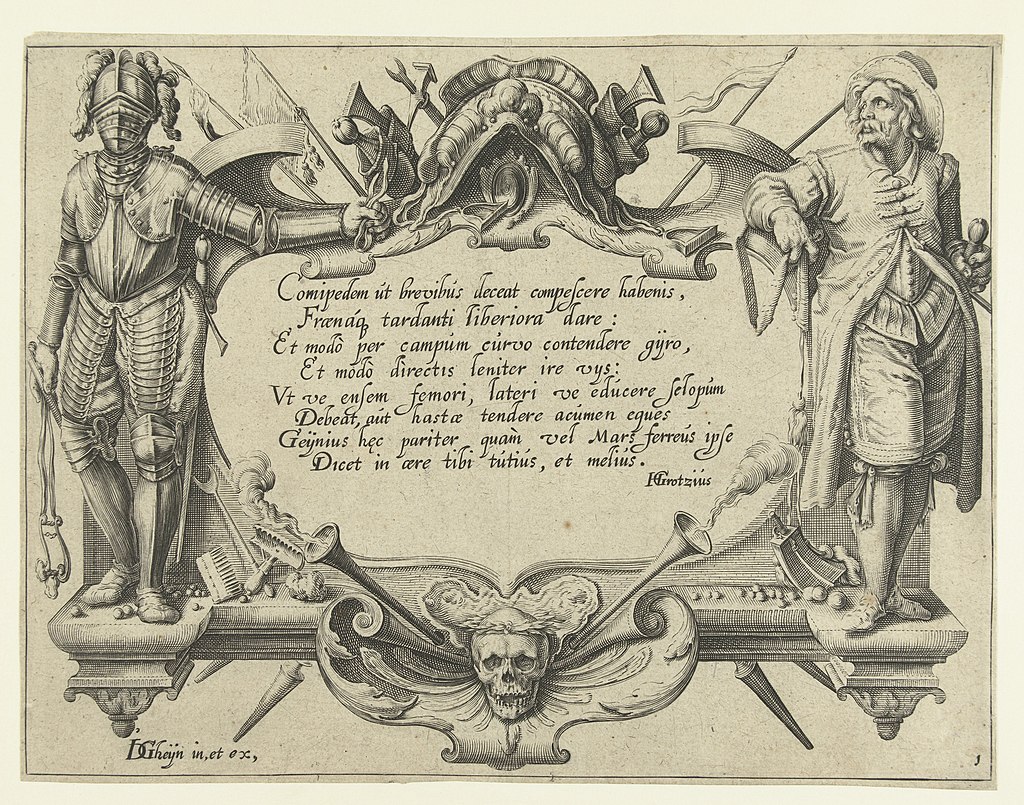 Cornipedem út brevibús deceat compescere habenis,
Frænáq tardanti liberiora dare:
Et modò per campúm cúrvo contendere gÿro,
Et modò directis leniter ire vÿs:
Vt ve ensem femori, lateri ve educere sclopúm
Debeat, aút hastæ tendere acúmen eques
Geÿnius hęc pariter quàm vel Mars ferreús ipse
Dicet in ære tibi tútiús, et meliús.
HGrotziús
IDGheÿn in, et ex,
1